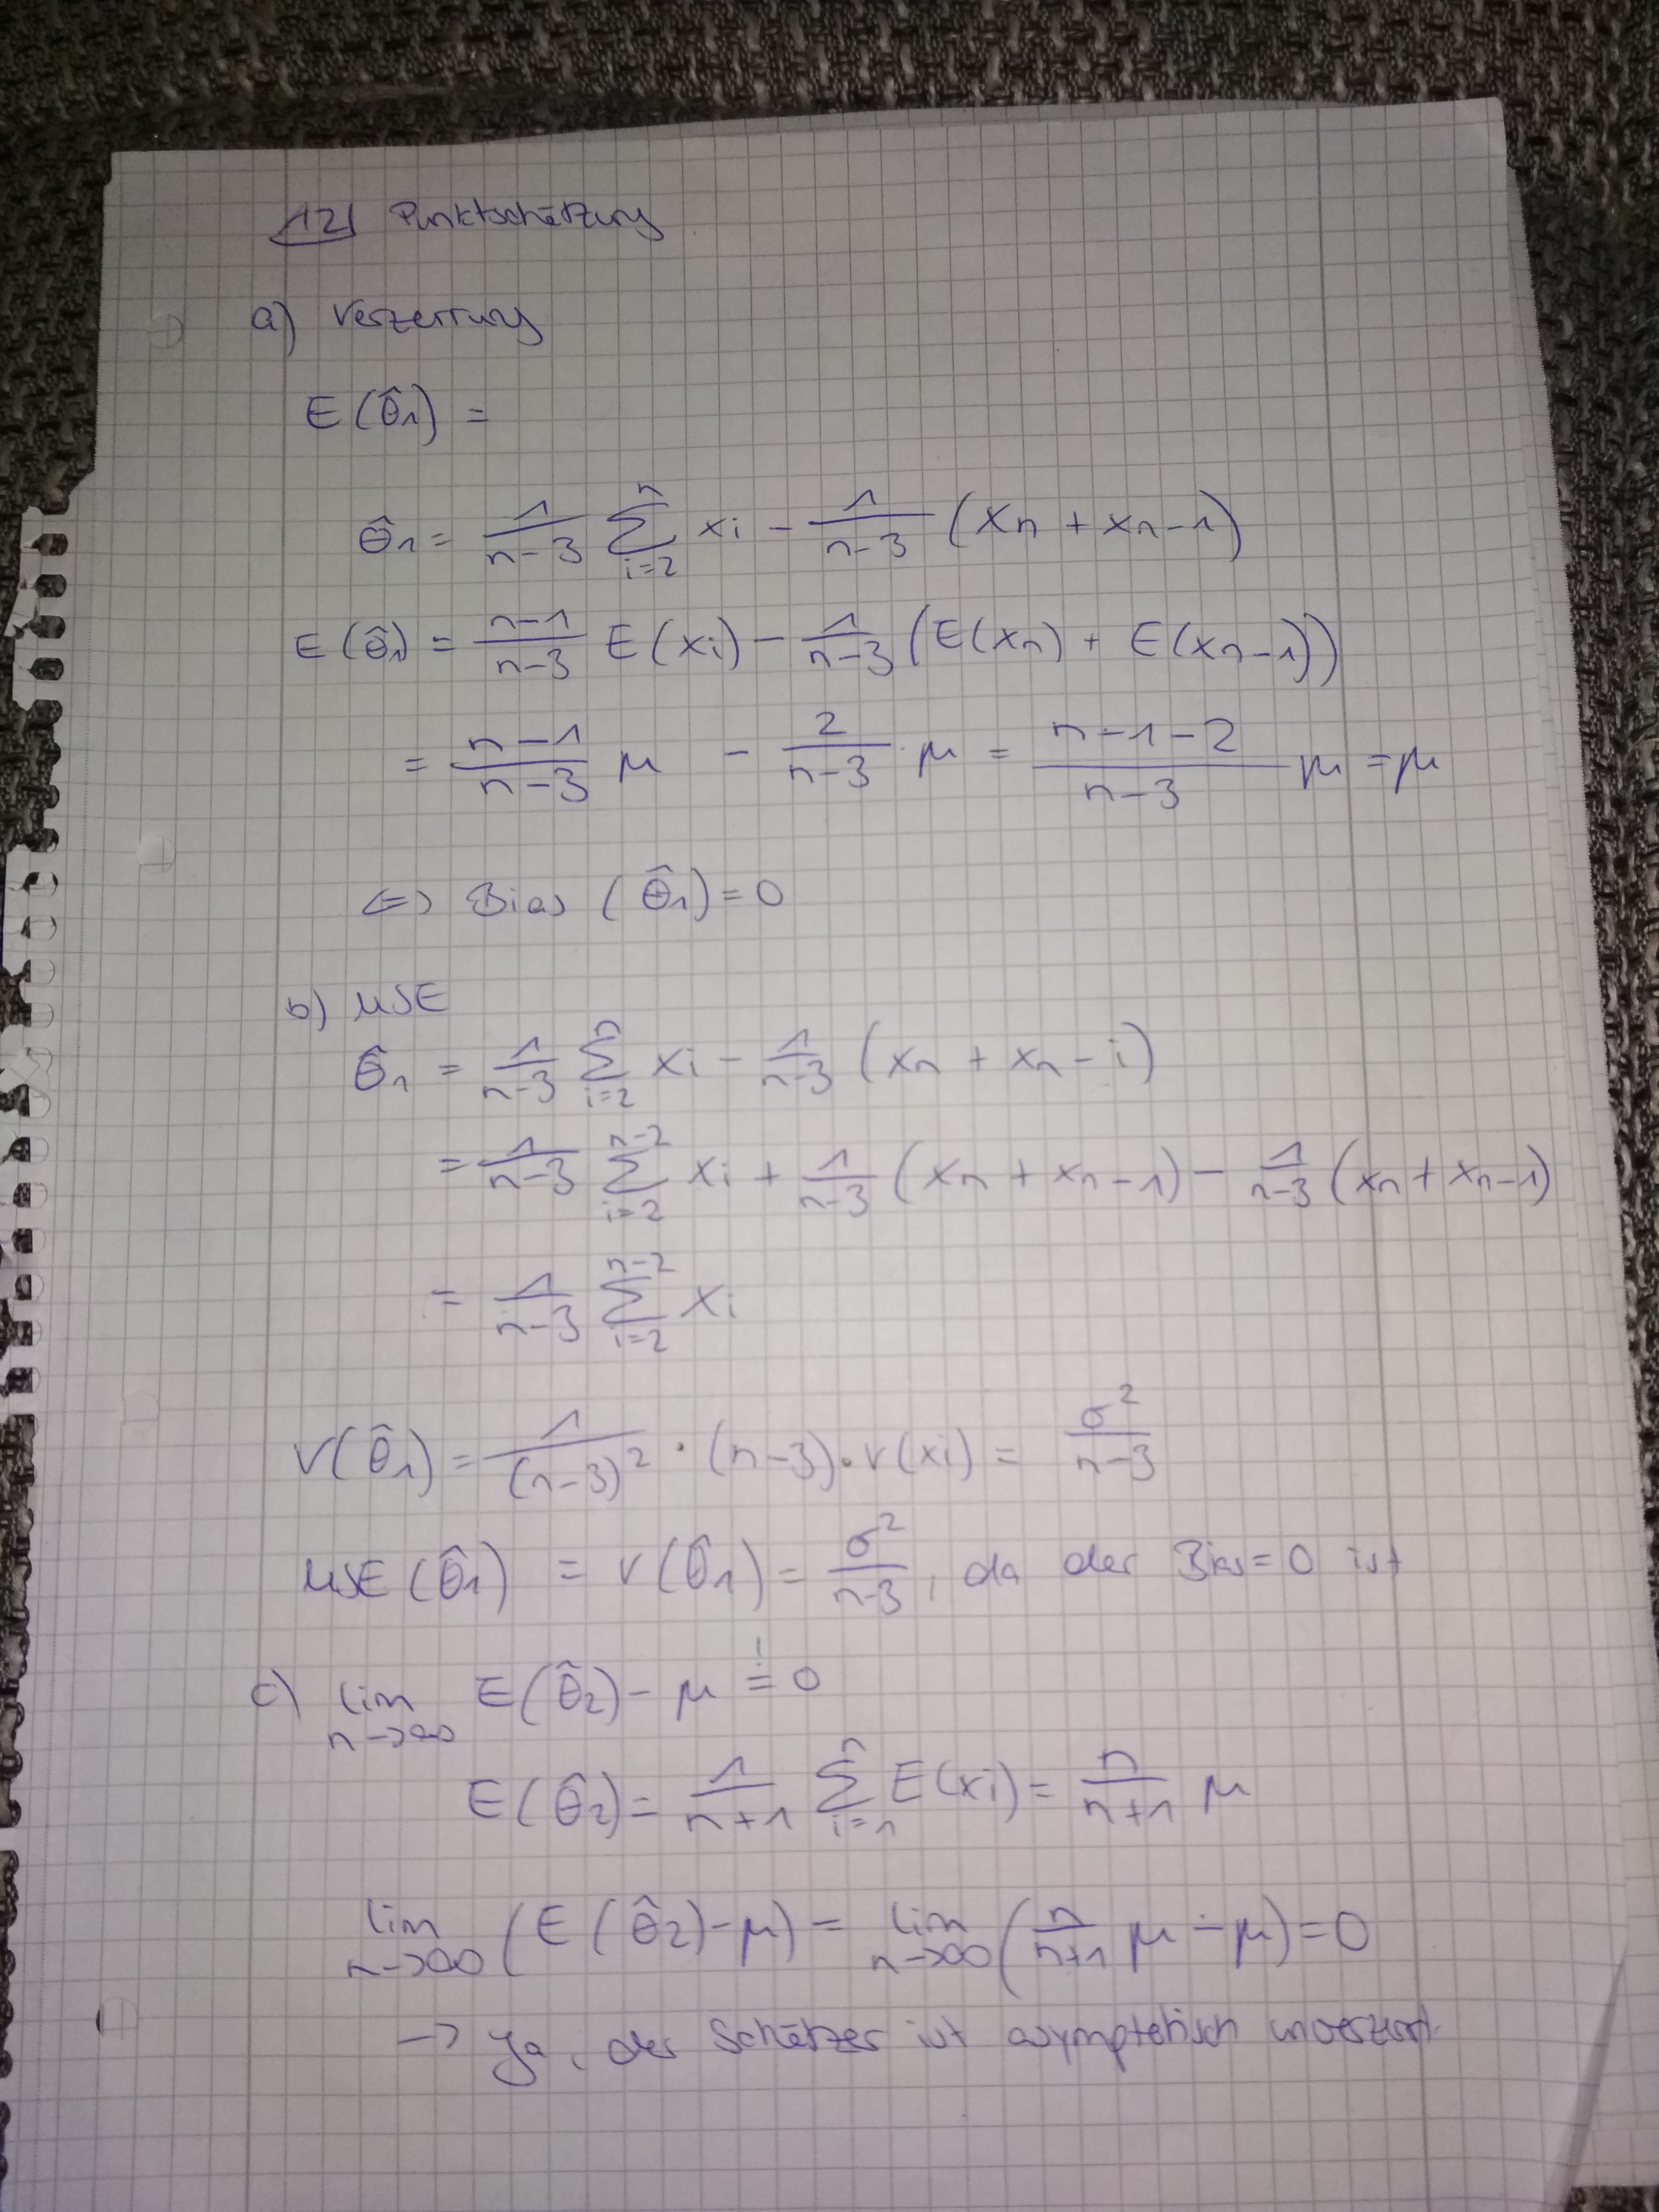 12) Punktschätzung
a) Verzerrung
E(θ̂₁) =
θ̂₁ = 1/(n-3) ∑_{i=2}^{n} xi - 1/(n-3) (xn + xn-1)
E(θ̂₁) = (n-1)/(n-3) E(xi) - 1/(n-3) (E(xn) + E(xn-1))
= (n-1)/(n-3) μ - 2/(n-3) · μ = (n-1-2)/(n-3) μ = μ
⇔ Bias (θ̂₁) = 0
b) MSE
θ̂₁ = 1/(n-3) ∑_{i=2}^{n} xi - 1/(n-3) (xn + xn-i)
= 1/(n-3) ∑_{i=2}^{n-2} xi + 1/(n-3) (xn + xn-1) - 1/(n-3) (xn + xn-1)
= 1/(n-3) ∑_{i=2}^{n-2} xi
V(θ̂₁) = 1/(n-3)² · (n-3) · V(xi) = σ²/(n-3)
MSE(θ̂₁) = V(θ̂₁) = σ²/(n-3), da der Bias = 0 ist
c) lim_{n→∞} E(θ̂₂) - μ =! 0
E(θ̂₂) = 1/(n+1) ∑_{i=1}^{n} E(xi) = n/(n+1) μ
lim_{n→∞} (E(θ̂₂) - μ) = lim_{n→∞} (n/(n+1) μ - μ) = 0
→ Ja, der Schätzer ist asymptotisch unverzerrt.